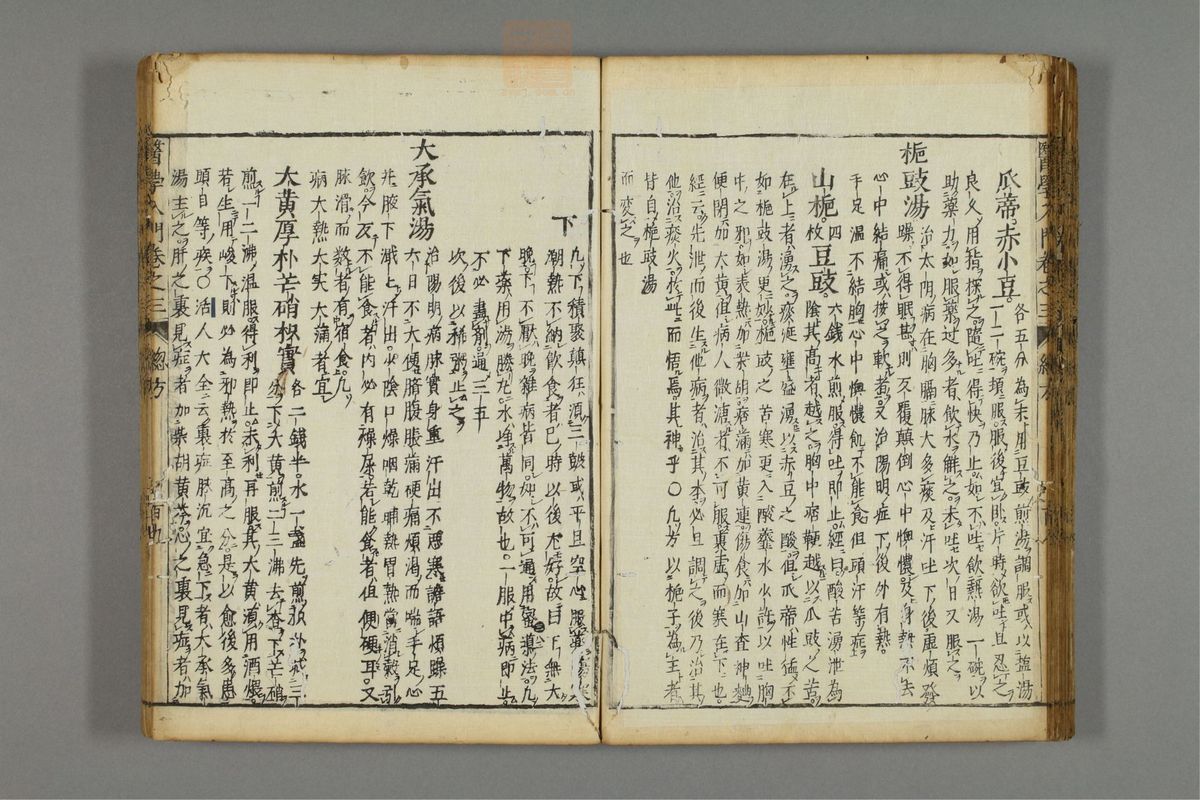 瓜蒂 赤小豆 各五分為末用豆豉煎湯調服或以韲湯
一二碗頓服服後宜臥片時欲吐且忍之
良久用指探之隨吐得快乃止如不吐飲熱湯一碗以
助藥力如服藥过多者飲水解之未吐次日又服之
梔豉湯 治太阴病在胸膈脉大多痰及汗吐下後虛煩發
躁不得眠甚則反覆顛倒心中懊憹及身熱不去
心中結痛或按之軟者又治陽明症下後外有熱
手足温不結胸心中懊憹飢不能食但頭汗等症
山梔四枚 豆豉六錢水煎服得吐即止經曰酸苦湧泄為
陰其高者越之胸中痞鞕越以瓜豉之苦
在上者湧之痰涎壅盛湧以赤豆之酸但瓜蒂性猛不
如梔豉湯更妙梔豉之苦寒更入酸虀水水許以吐胸
中之邪如表熱加柴胡痞滿加黄連傷食加山査神麯
便閉加大黄但病人微溏者不可服裏虛而寒在下也
經云先泄而後生他病者治其本必且調之後乃治其
他治痰火於此而悟焉其神乎〇凡方以梔子為主者
皆自梔豉湯
而変之也
下
凡下積聚顛狂須三鼓或平旦空心服藥
潮熱不納飲食者巳時以後尤好故曰下無太
晚下不厭晚雜病皆同如不可通用蜜導法凡
下藥用湯勝丸水淨萬物故也一服中病即止
不必盡劑過三五
次後以稀粥止之
大承氣湯 治陽明病脉實身重汗出不惡寒譫語煩躁五
六日不大便臍腹脹滿硬痛煩渴而喘手足心
并腋下濈上汗出少陰口燥咽乾肺熱當消熱引
飲今反不能食者內必有燥屎若能食者胃但便硬耳又
脉滑而數者有宿食凡
病大熱大実大滿者宜
大黄 厚朴 芒硝 枳實 各二錢半水一盞先煎
下大黄煎二三沸去滓下芒硝
煎一二沸温服得利即止未利再服其大黄須用酒煨
若生用峻下則必為邪熱於至高之分是以愈後多患
頭目等疾〇活人大全云裏症脉沉宜急下者大承氣
湯主之肝之裏見症者加柴胡黄芩心之裏見症者加
醫學入門卷之三
總方